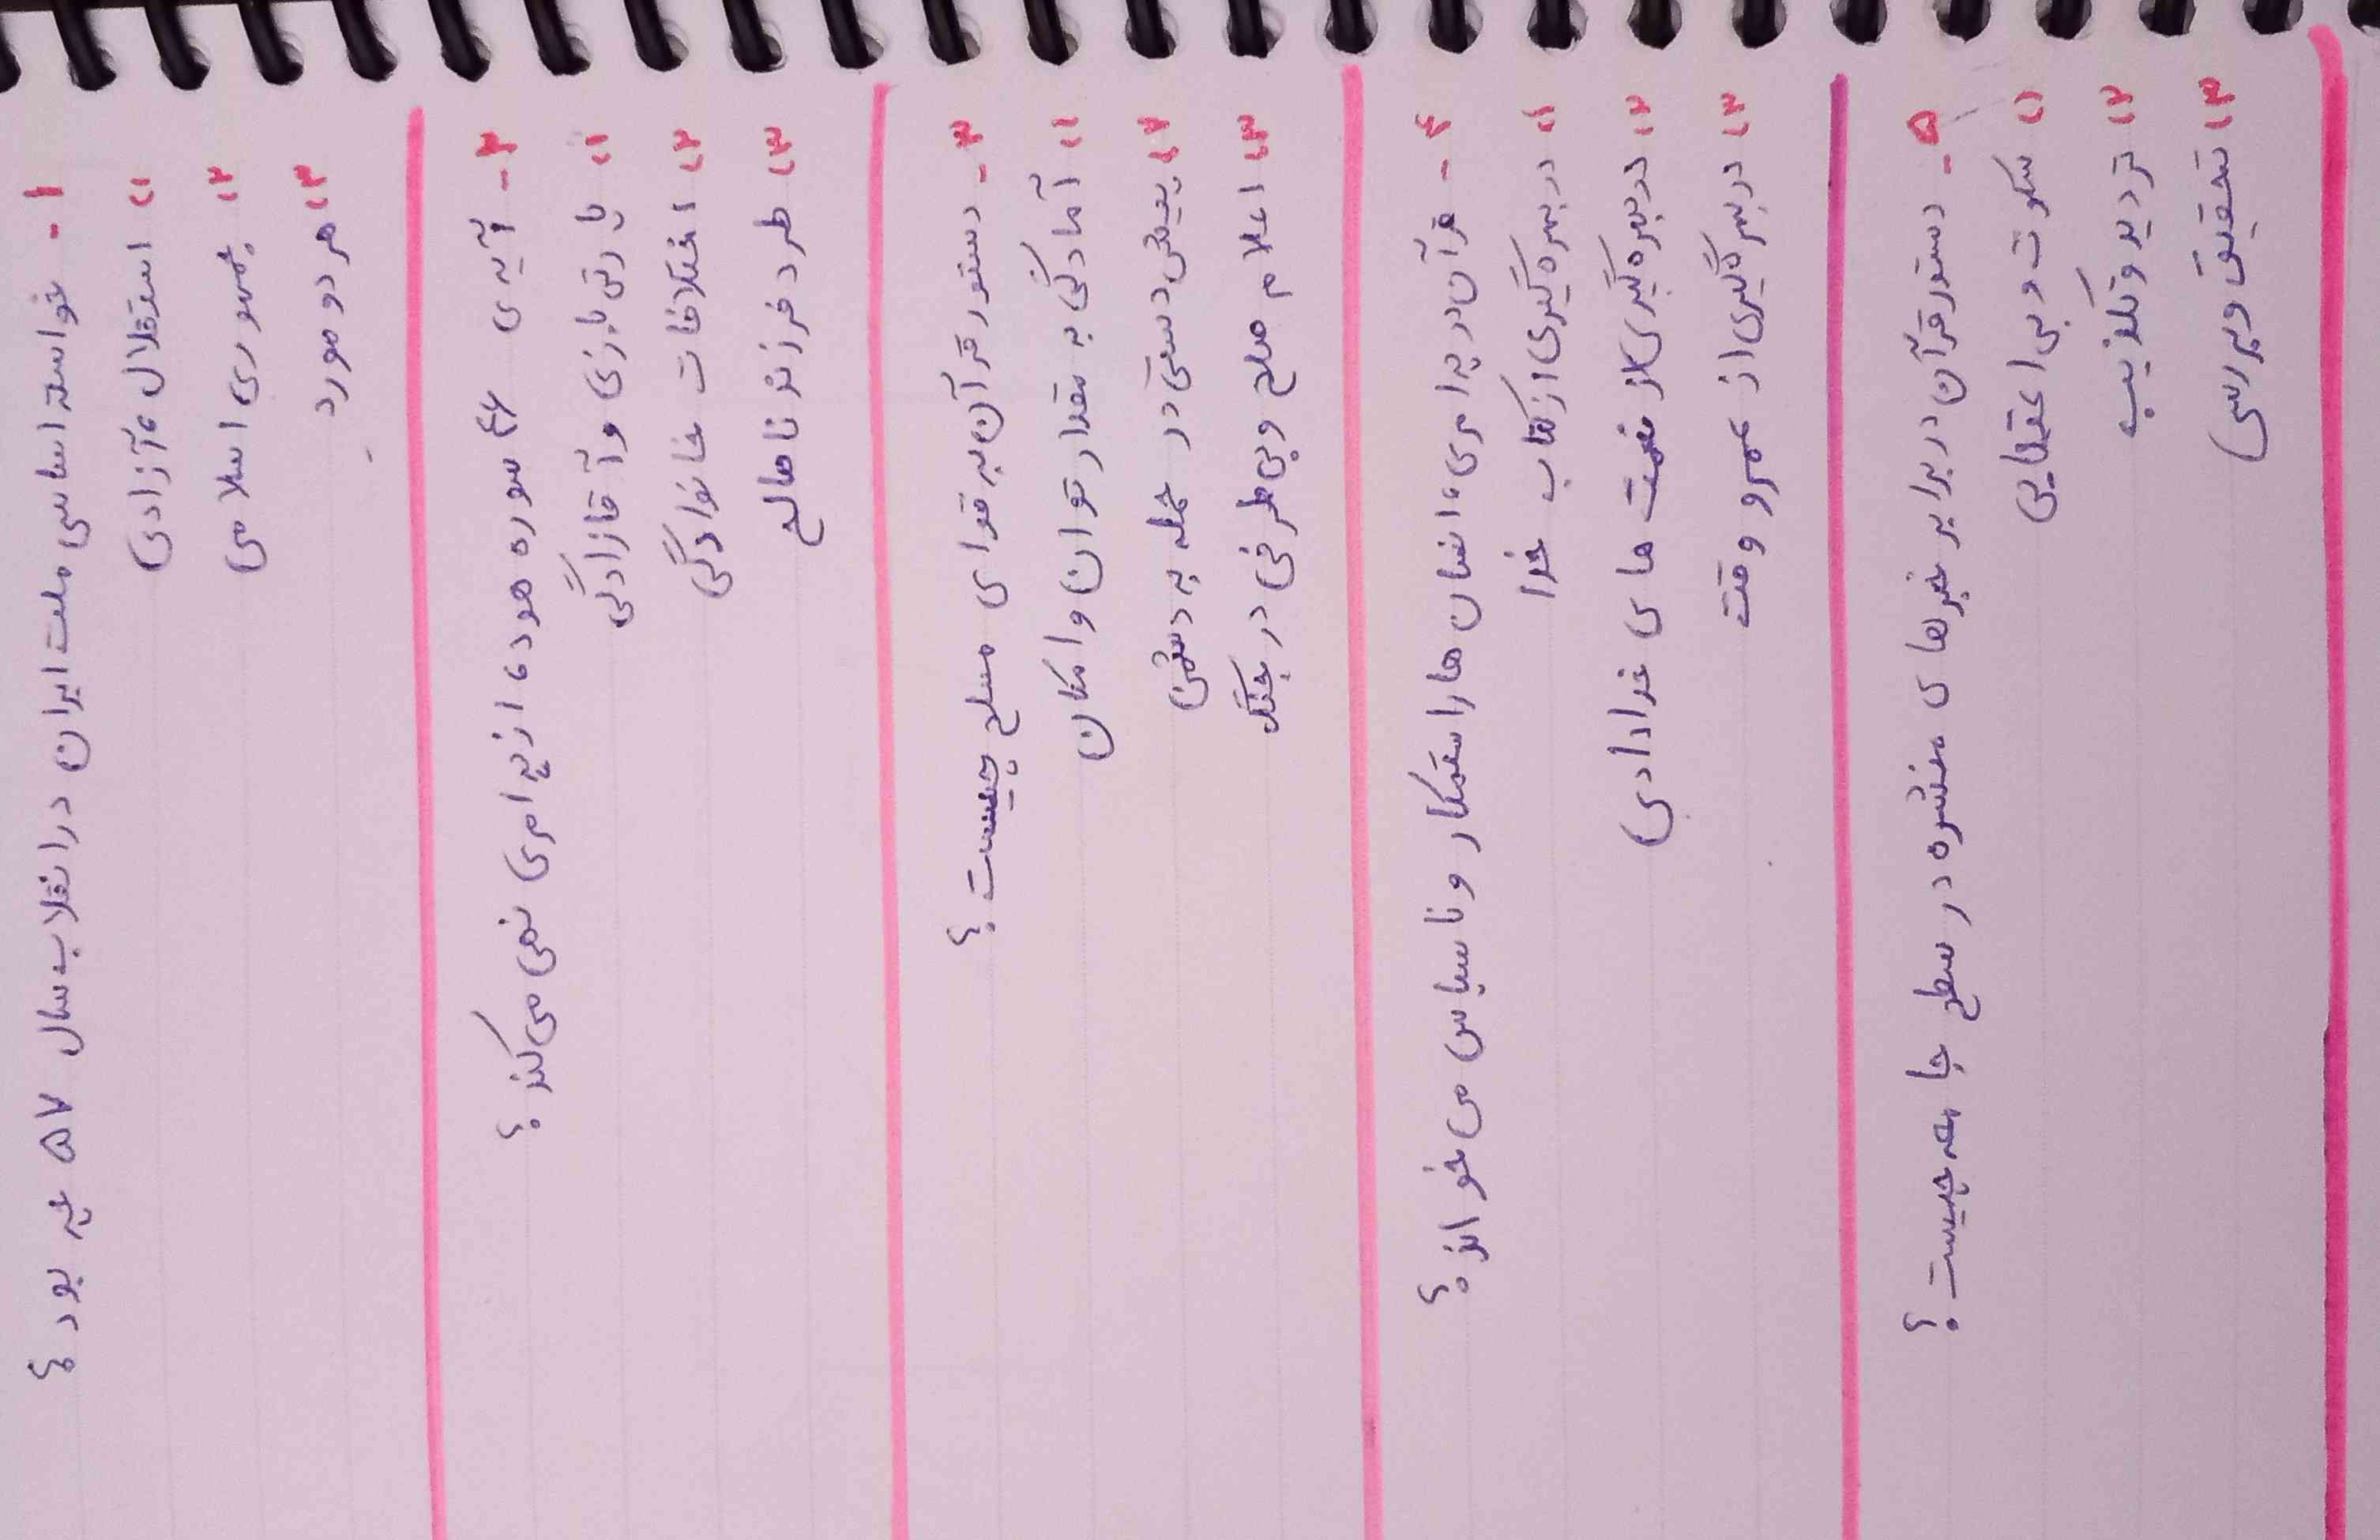 ۱- خواسته اساسی ملت ایران در انقلاب سال ۵۷ چه بود؟
۱) استقلال، آزادی
۲) جمهوری اسلامی
۳) هر دو مورد
۲- آیه‌ی ۴۶ سوره هود، از چه امری نهی می‌کند؟
۱) پارتی بازی و آقازادگی
۲) اختلافات خانوادگی
۳) طرد فرزند ناصالح
۳- دستور قرآن به قوای مسلح چیست؟
۱) آمادگی به مقدار توان و امکان
۲) پیش دستی در حمله به دشمن
۳) اعلام صلح و بی طرفی در جنگ
۴- قرآن در چه امری، انسان ها را ستمکار و ناسپاس می خواند؟
۱) در بهره گیری از کتاب خدا
۲) در بهره گیری از نعمت های خدادادی
۳) در بهره گیری از عمر و وقت
۵- دستور قرآن در برابر خبرهای منتشره در سطح جامعه چیست؟
۱) سکوت و بی اعتنایی
۲) تردید و تکذیب
۳) تحقیق و بررسی